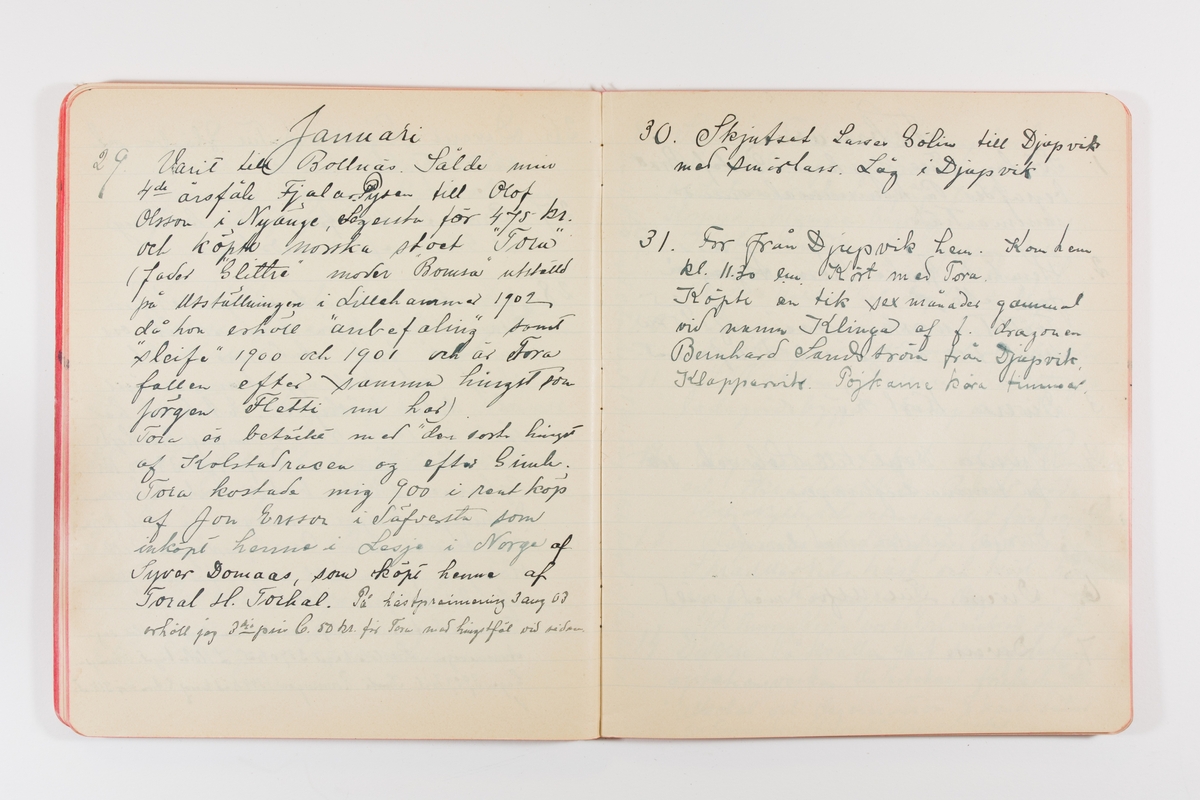 Januari
29. Varit till Bollnäs. Sålde min
4de årsföle Fjalar Pysen till Olof
Olsson i Nyänge, Segersta för 475 kr.
och köpte norska stoet "Tora"
(fader "Glitte" moder "Bomsa" utställd
på Utställningen i Lillehammer 1902
då hon erhöll "anbefaling" samt
"sleife" 1900 och 1901 och är Tora
fallen efter samma hingst som
Jörgen Fletti nu har)
Tora är betäckt med den sorte hingst
af Kolstadracen og efter Gimle.
Tora kostade mig 900 i rent köp
af Jon Ersson i Säfversta som
inköpt henne i Lesje i Norge af
Syver Domaas, som köpt henne af
Toral H. Torhal. På hästpremiering 3 aug 03
erhöll jag 3dje pris C. 50 kr. för Tora med hingstföl vid sidan.
30. Skjutset Lasses Gölin till Djupvik
med smörlass. Låg i Djupvik
31. For från Djupvik hem. Kom hem
kl. 11.30 em. Kört med Tora.
Köpte en tik sex månader gammal
vid namn Klinga af f. dragonen
Bernhard Sandström från Djupvik,
Klapparvik. Pojkarne köra timmer.